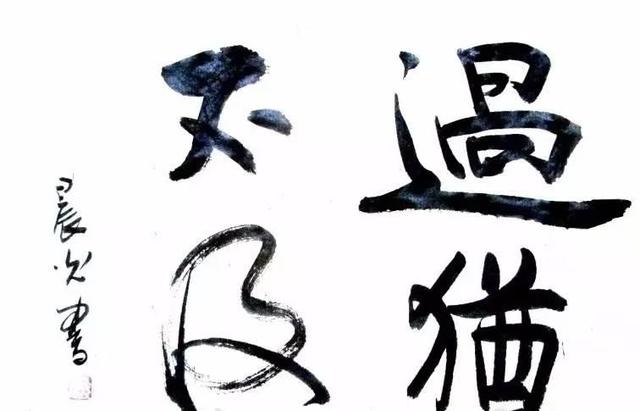 過猶
不及
晨光書